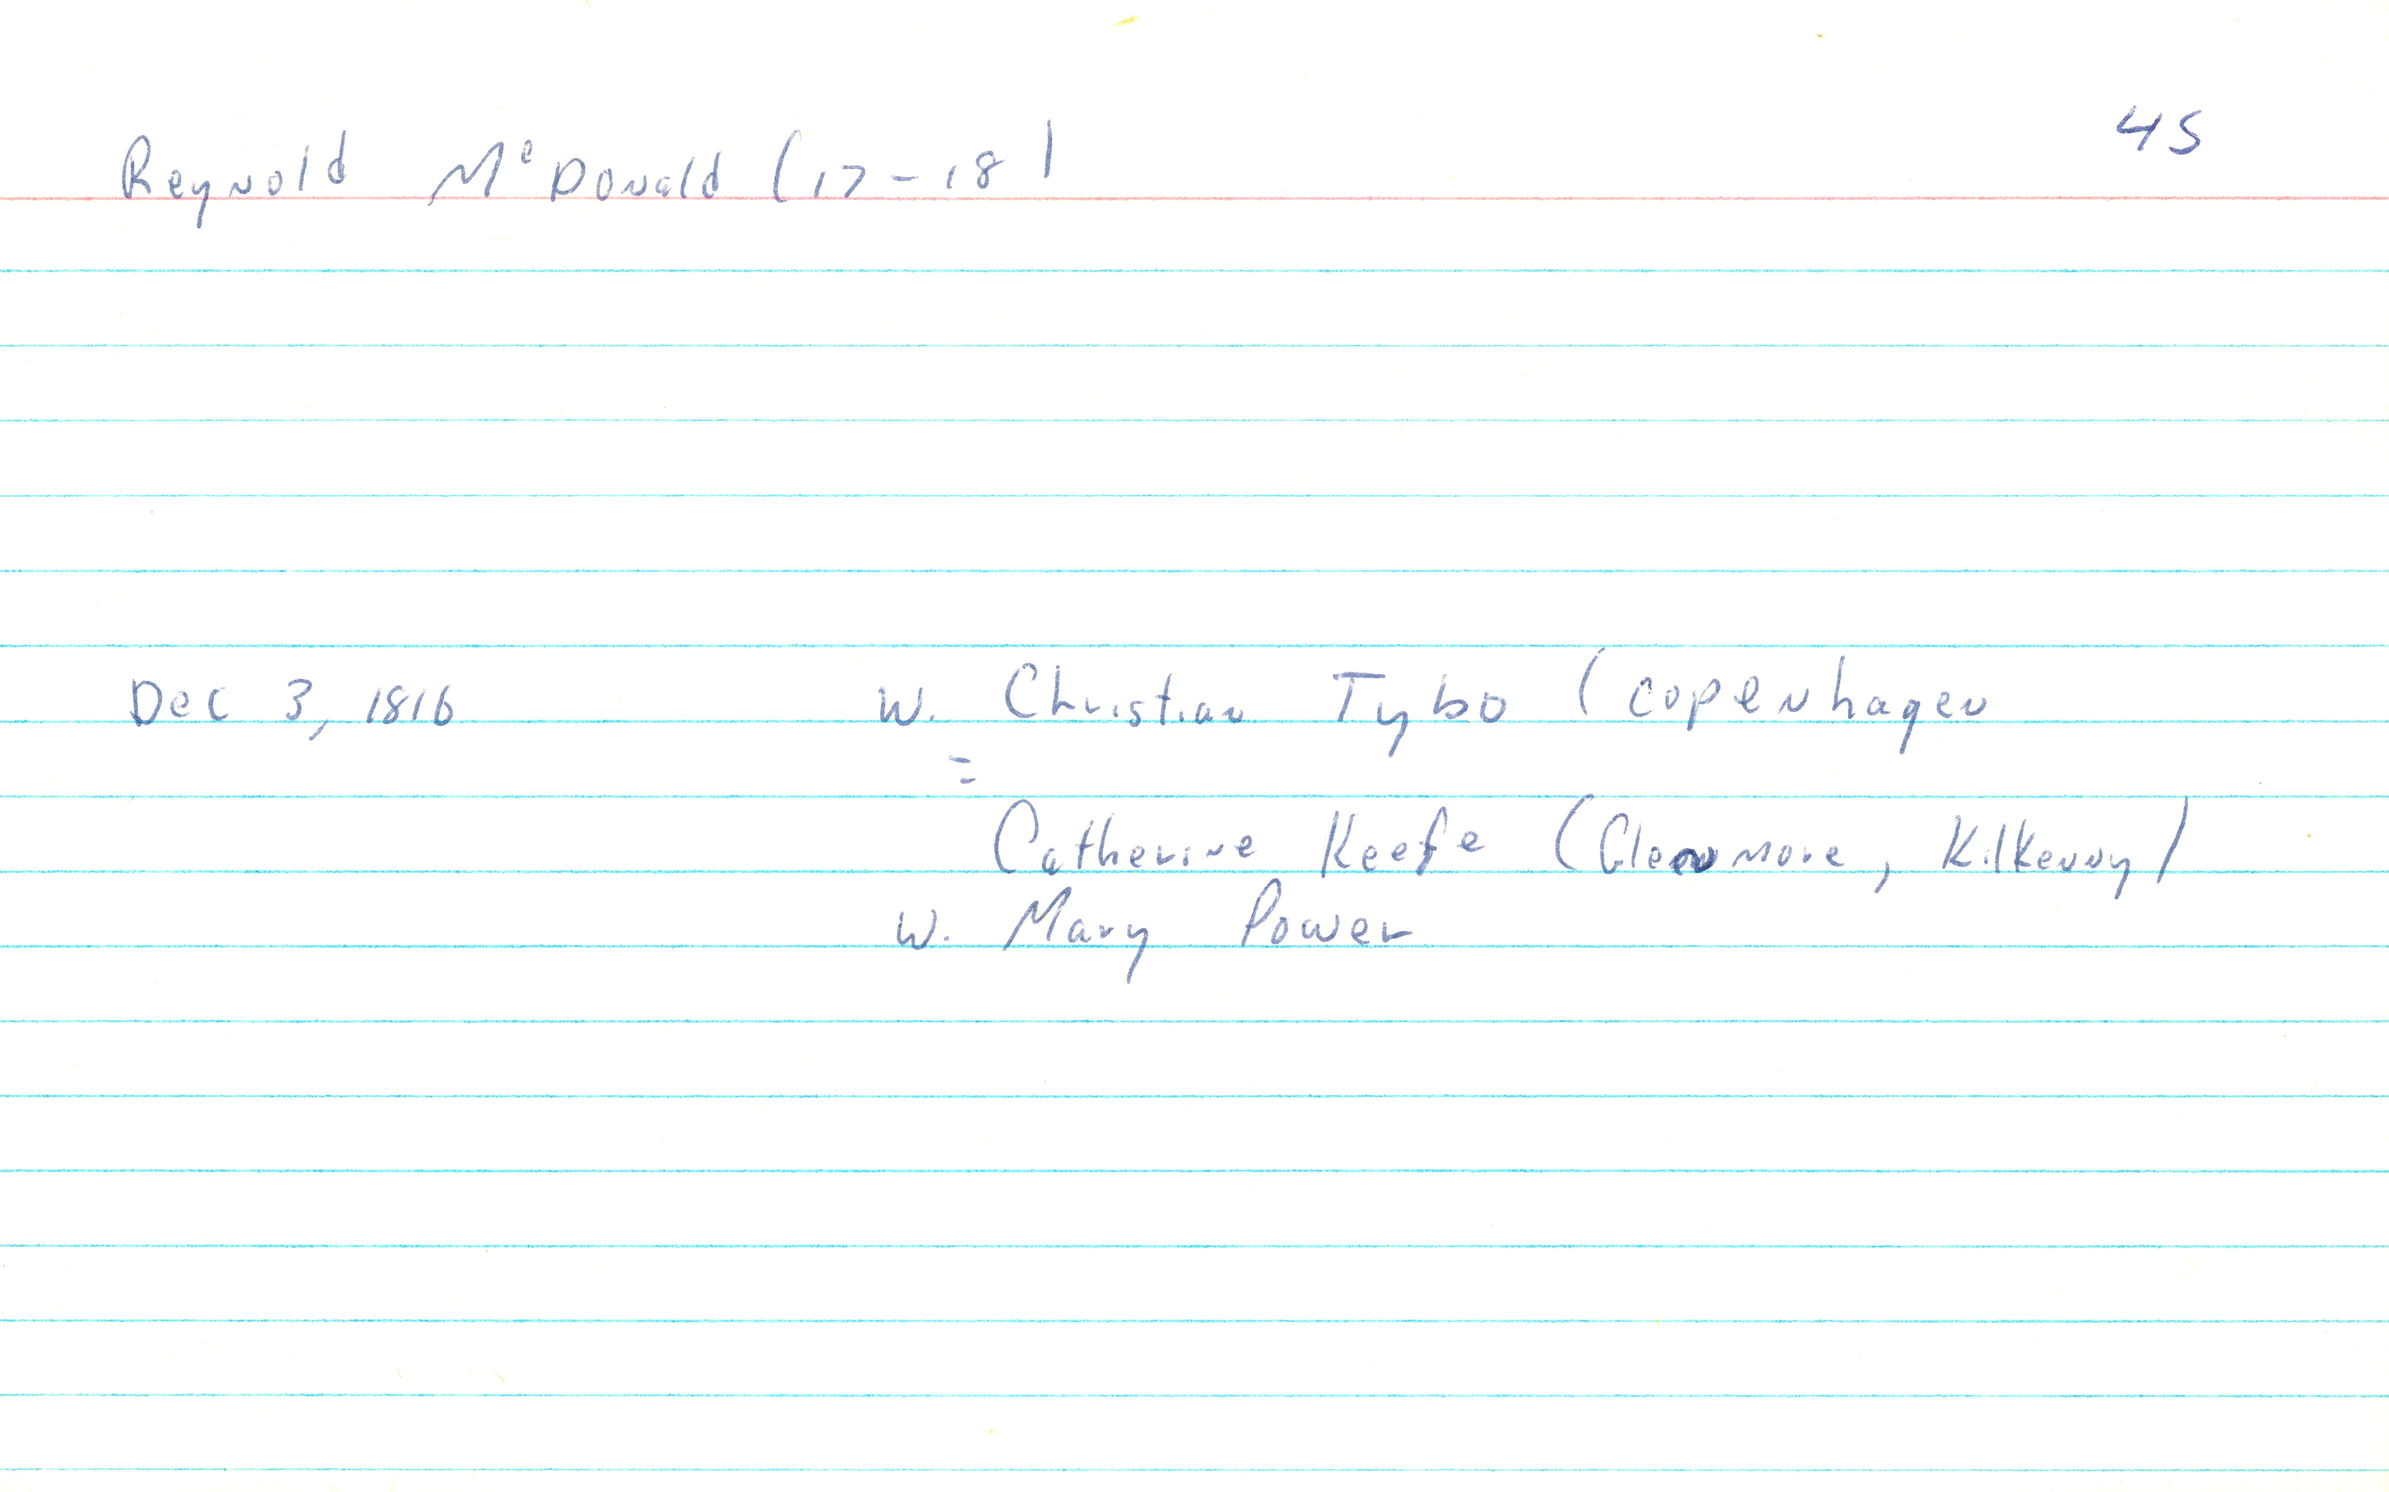 45
Reynold McDonald (17-18)
Dec 3, 1816 W. Christian Tybo (Copenhagen
=
Catherine Keefe (Glenmore, Kilkenny)
W. Mary Power